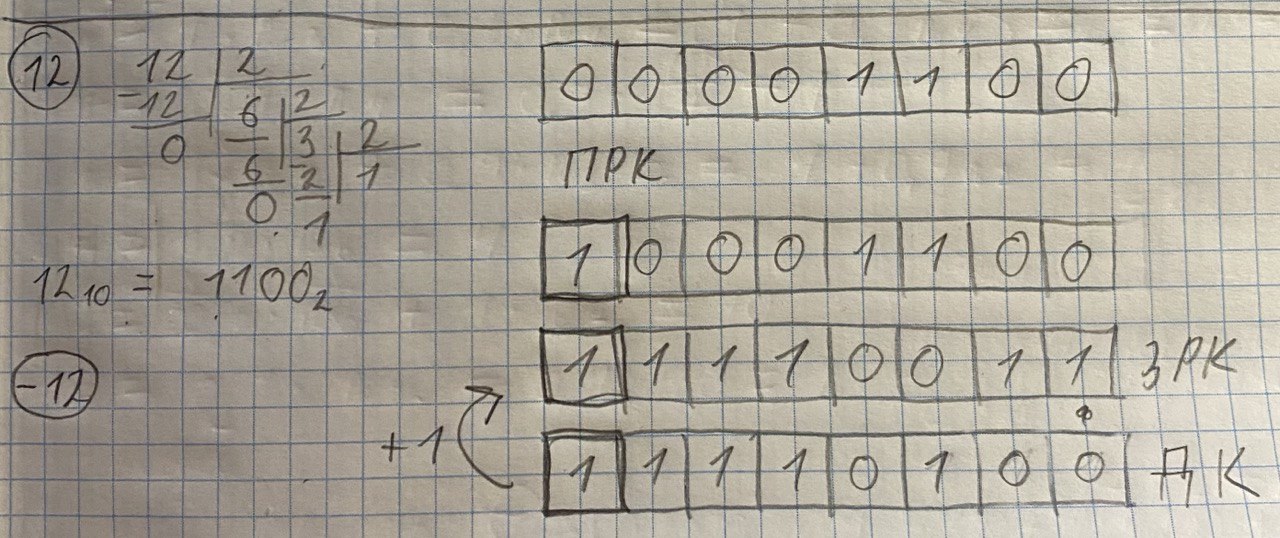 12
12 2
-12 6 2
0 6 3 2
0 2 1
1
12₁₀ = 1100₂
-12
0 0 0 0 1 1 0 0
ПРК
1 0 0 0 1 1 0 0
1 1 1 1 0 0 1 1 ЗРК
+1
1 1 1 1 0 1 0 0 ДК